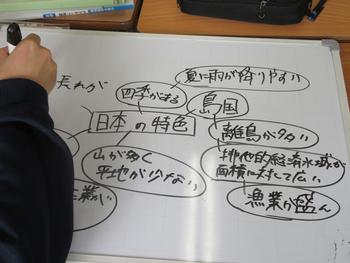 夏に雨が降りやすい
四季がある
島国
流れが
日本の特色
離島が多い
山が多く
平地が少ない
排他的経済水域が
面積に対して広い
業が
漁業が盛ん